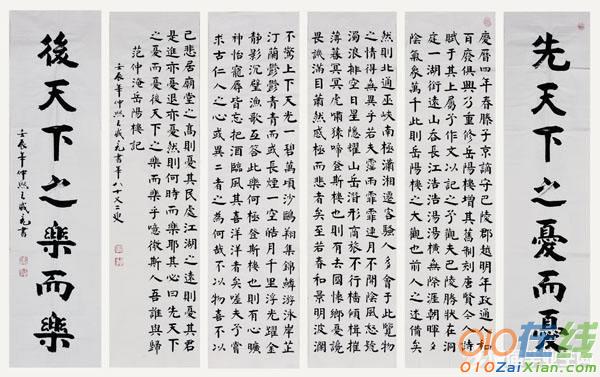 先天下之憂而憂
慶曆四年春滕子京謫守巴陵郡越明年政通人和
百廢俱興乃重修岳陽樓增其舊制刻唐賢今人詩
賦于其上屬予作文以記之予觀夫巴陵勝狀在洞
庭一湖銜遠山吞長江浩浩湯湯橫無際涯朝暉夕
陰氣象萬千此則岳陽樓之大觀也前人之述備矣
然則北通巫峽南極瀟湘遷客騷人多會于此覽物
之情得無異乎若夫霪雨霏霏連月不開陰風怒號
濁浪排空日星隱耀山岳潛形商旅不行檣傾楫摧
薄暮冥冥虎嘯猿啼登斯樓也則有去國懷鄉憂讒
畏譏滿目蕭然感極而悲者矣至若春和景明波瀾
不驚上下天光一碧萬頃沙鷗翔集錦鱗游泳岸芷
汀蘭鬱鬱青青而或長煙一空皓月千里浮光耀金
靜影沉璧漁歌互答此樂何極登斯樓也則有心曠
神怡寵辱皆忘把酒臨風其喜洋洋者矣嗟夫予嘗
求古仁人之心或異二者之為何哉不以物喜不以
己悲居廟堂之高則憂其民處江湖之遠則憂其君
是進亦憂退亦憂然則何時而樂耶其必曰先天下
之憂而憂後天下之樂而樂乎噫微斯人吾誰與歸
范仲淹岳陽樓記
壬辰年仲 王成 書年八十又二
後天下之樂而樂
壬辰年仲 王成 書
010在线
010ZaiXian.com